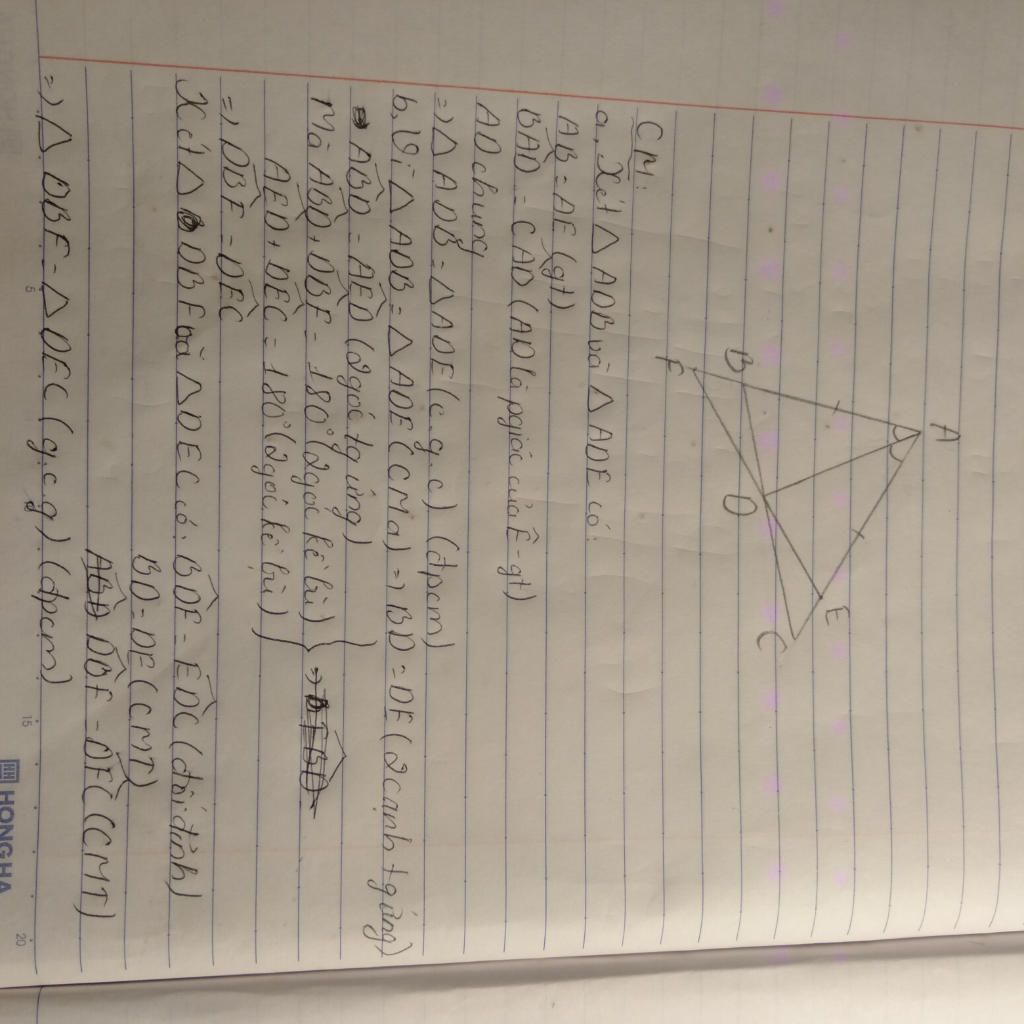 A
B
E
C
D
F
CM:
a, Xét △ ADB và △ ADE có:
AB = AE (gt)
BAD̂ = CAD̂ (AD là pgiác của Ê - gt)
AD chung
=) △ ADB = △ ADE (c.g.c) (đpcm)
b, Vì △ ADB = △ ADE (CMa) =) BD = DE (2 cạnh tgứng)
=) ABD̂ = AED̂ (2 góc tg ứng)
Mà ABD̂ + DBF̂ = 180° (2 góc kề bù) } =)
AED̂ + DEĈ = 180° (2 góc kề bù)
=) DBF̂ = DEĈ
Xét △ DBF và △ DEC có: BDF̂ = EDĈ (đối đỉnh)
BD = DE (CMT)
DBF̂ = DEĈ (CMT)
=) △ DBF = △ DEC (g.c.g) (đpcm)
5
15
20
HONG HA